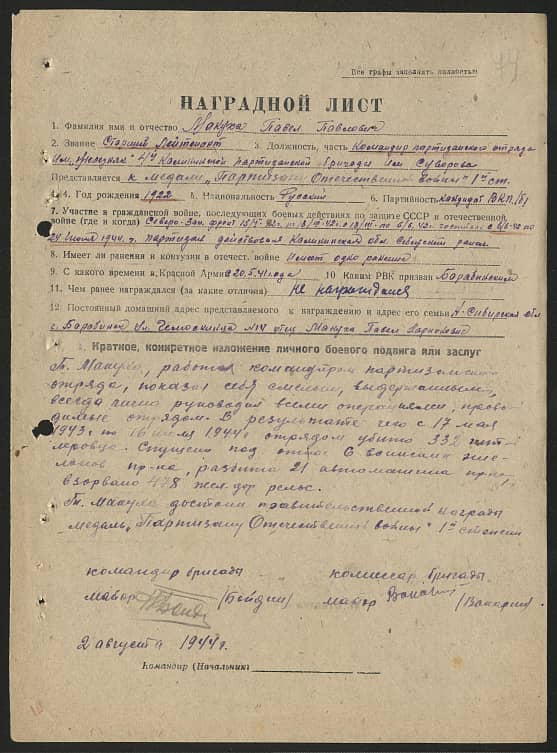 Все графы заполнять полностью
НАГРАДНОЙ ЛИСТ
1. Фамилия имя и отчество Макуха Павел Павлович
2. Звание Старший Лейтенант 3. Должность, часть Командир партизанского отряда
4й Калининской партизанской бригады им Суворова
Представляется к медали „Партизану Отечественной войны" 1й ст.
4. Год рождения 1922 5. Национальность Русский 6. Партийность кандидат ВКП/б/
7. Участие в гражданской войне, последующих боевых действиях по защите СССР и отечественной
войне (где и когда) Северо-Зап. фронт
партизан действовал Калининская обл.
8. Имеет ли ранения и контузии в отечест. войне Имеет одно ранение
9. С какого времени в Красной Армии с 20.5.41 года 10 Каким РВК призван Барабинским
11. Чем ранее награждался (за какие отличия) не награждался
12. Постоянный домашний адрес представляемого к награждению и адрес его семьи Н-Сибирская обл
г. Барабинск ул. отец Макуха Павел
1. Краткое, конкретное изложение личного боевого подвига или заслуг
Тв. Макуха, работая командиром партизанского
отряда, показал себя смелым, выдержанным,
всегда лично руководил всеми операциями, прово-
димые отрядом. В результате чего с 17 мая
1943г по 16 июля 1944г отрядом убито 332 гит-
леровца. Спущено под откос 6 воинских эше-
лонов пр-ка, разбита 21 автомашина пр-ка
взорвано 478 жел дор рельс.
Тв. Макуха достоин правительственной награды
медаль „Партизану Отечественной войны" 1й степени
командир бригады комиссар бригады
майор (Бойдин) майор
2 августа 1944 г.
Командир (Начальник)